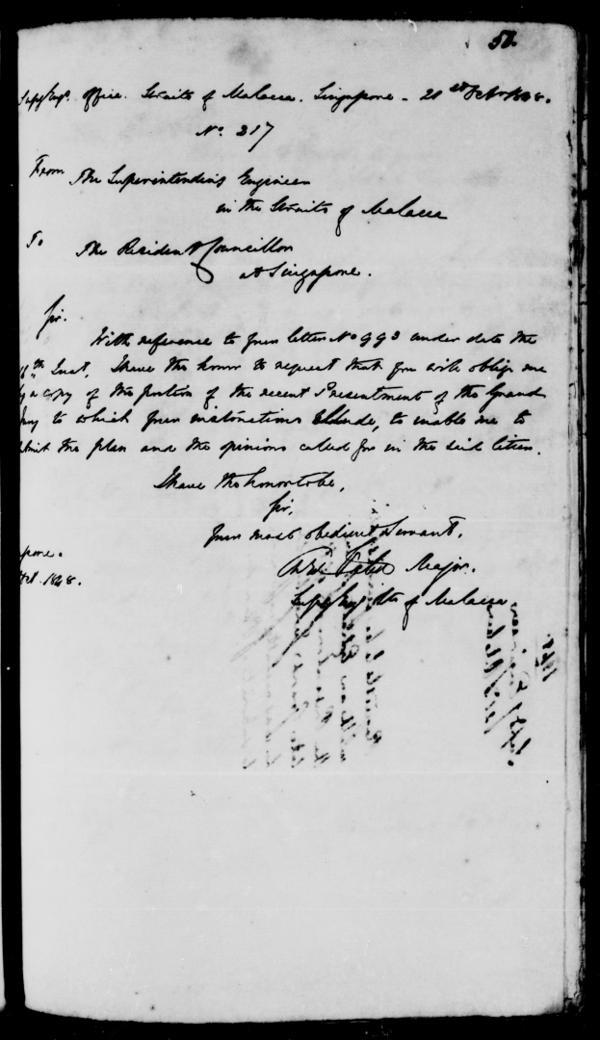 58.
Supg Engrs. Office. Straits of Malacca. Singapore - 21st Octr 1848.
No. 217
From The Superintending Engineer
in the Straits of Malacca
To The Resident Councillor
at Singapore.
Sir.
With reference to your letter No 993 under date the
Inst, I have the honor to request that you will oblige me
by a copy of the portion of the recent Presentment of the Grand
Jury to which your instructions allude, to enable me to
submit the plan and the opinions called for in the said letter.
I have the honor to be,
Sir,
Your most obedient Servant,
Major.
Supg Engr Sts of Malacca
pore.
Oct. 1848.